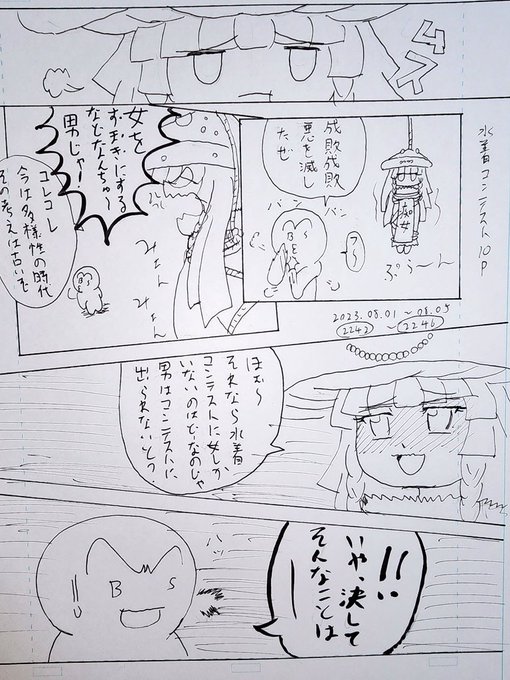 ムスー
水着コンテスト10P
痴女
ぷらーん
成敗成敗
悪を滅し
たぜ
パン
パン
フゥ
BS
2023.08.01~08.05
2242~2246
女を
すまきにする
などなんちゅ〜
男じゃー
みょん
みょん
コレコレ
今は多様性の時代
その考えは古いだ
ほむ〜
それなら水着
コンテストに女しか
いないのはどーなのじゃ
男はコンテストに
出られないとう
!!い
いや、決して
そんなことは
ハッ
BS